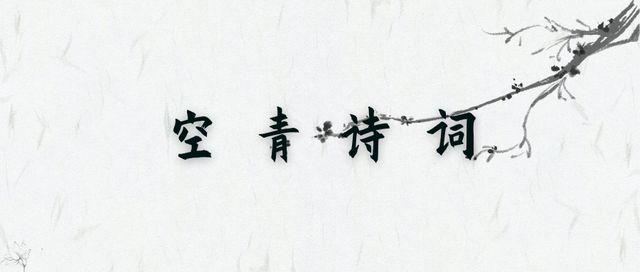 空青诗词